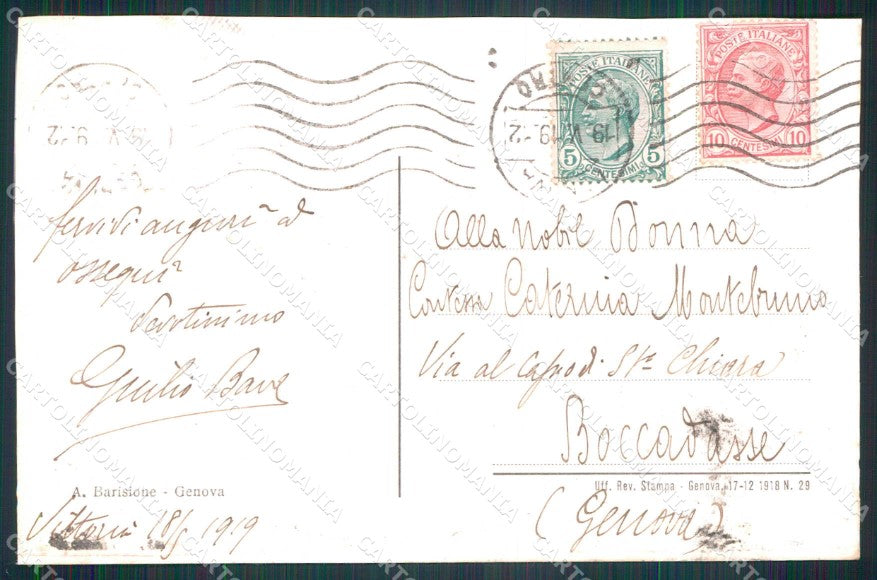 POSTE ITALIANE
5 5
CENTESIMI
POSTE ITALIANE
10 10
CENTESIMI
19 12
fervidi auguri ed
ossequi
Devotissimo
Giulio
A. Barisione - Genova
18/5 1919
Alla Nobil Donna
Contessa Caterina Montebruno
Via al Capo di Sta Chiara
Boccadasse
Uff. Rev. Stampa - Genova, 17-12 1918 N. 29
(Genova)
CARTOLINOMANIA